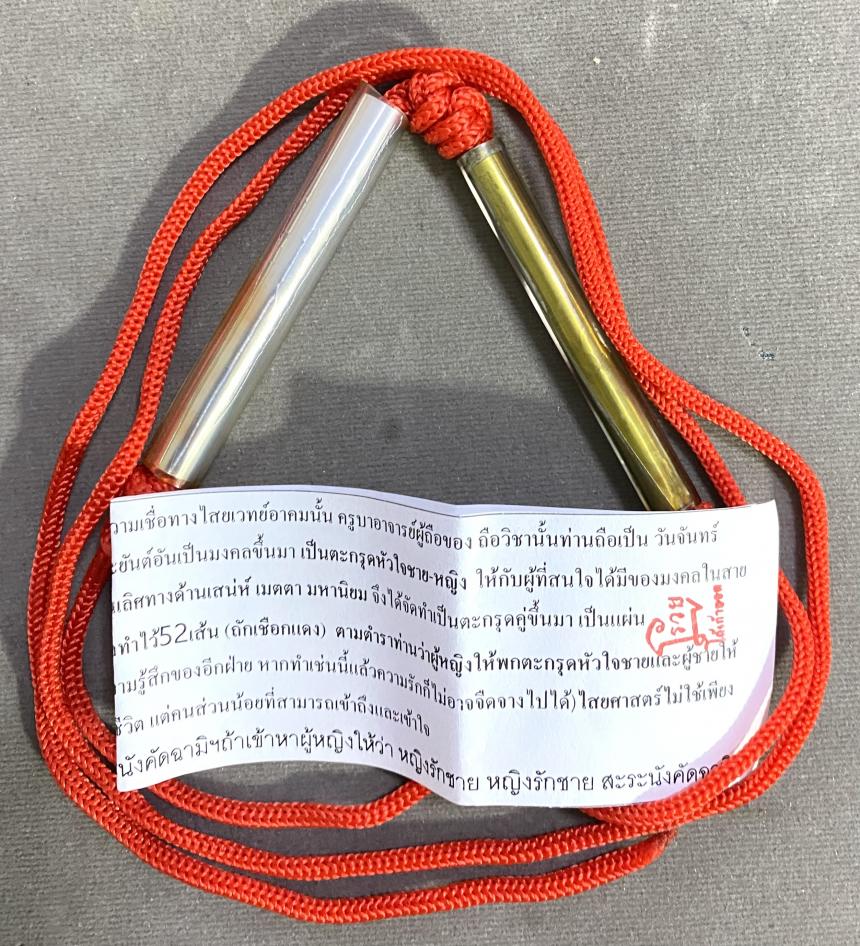 วามเชื่อทางไสยเวทย์อาคมนั้น ครูบาอาจารย์ผู้ถือของ ถือวิชานั้นท่านถือเป็น วันจันทร์
ะยันต์อันเป็นมงคลขึ้นมา เป็นตะกรุดหัวใจชาย-หญิง ให้กับผู้ที่สนใจได้มีของมงคลในสาย
เลิศทางด้านเสน่ห์ เมตตา มหานิยม จึงได้จัดทำเป็นตะกรุดคู่ขึ้นมา เป็นแผ่น
ทำไว้52เส้น (ถักเชือกแดง) ตามตำราท่านว่าผู้หญิงให้พกตะกรุดหัวใจชายและผู้ชายให้
ามรู้สึกของอีกฝ่าย หากทำเช่นนี้แล้วความรักก็ไม่อาจจืดจางไปได้)ไสยศาสตร์ไม่ใช้เพียง
ชีวิต แต่คนส่วนน้อยที่สามารถเข้าถึงและเข้าใจ
นังคัดฉามิฯถ้าเข้าหาผู้หญิงให้ว่า หญิงรักชาย หญิงรักชาย สะระนังคัดฉามิ